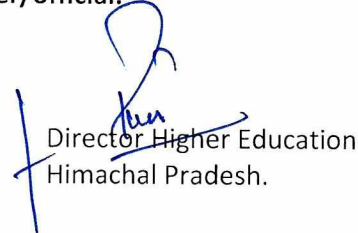 Director Higher Education
Himachal Pradesh.